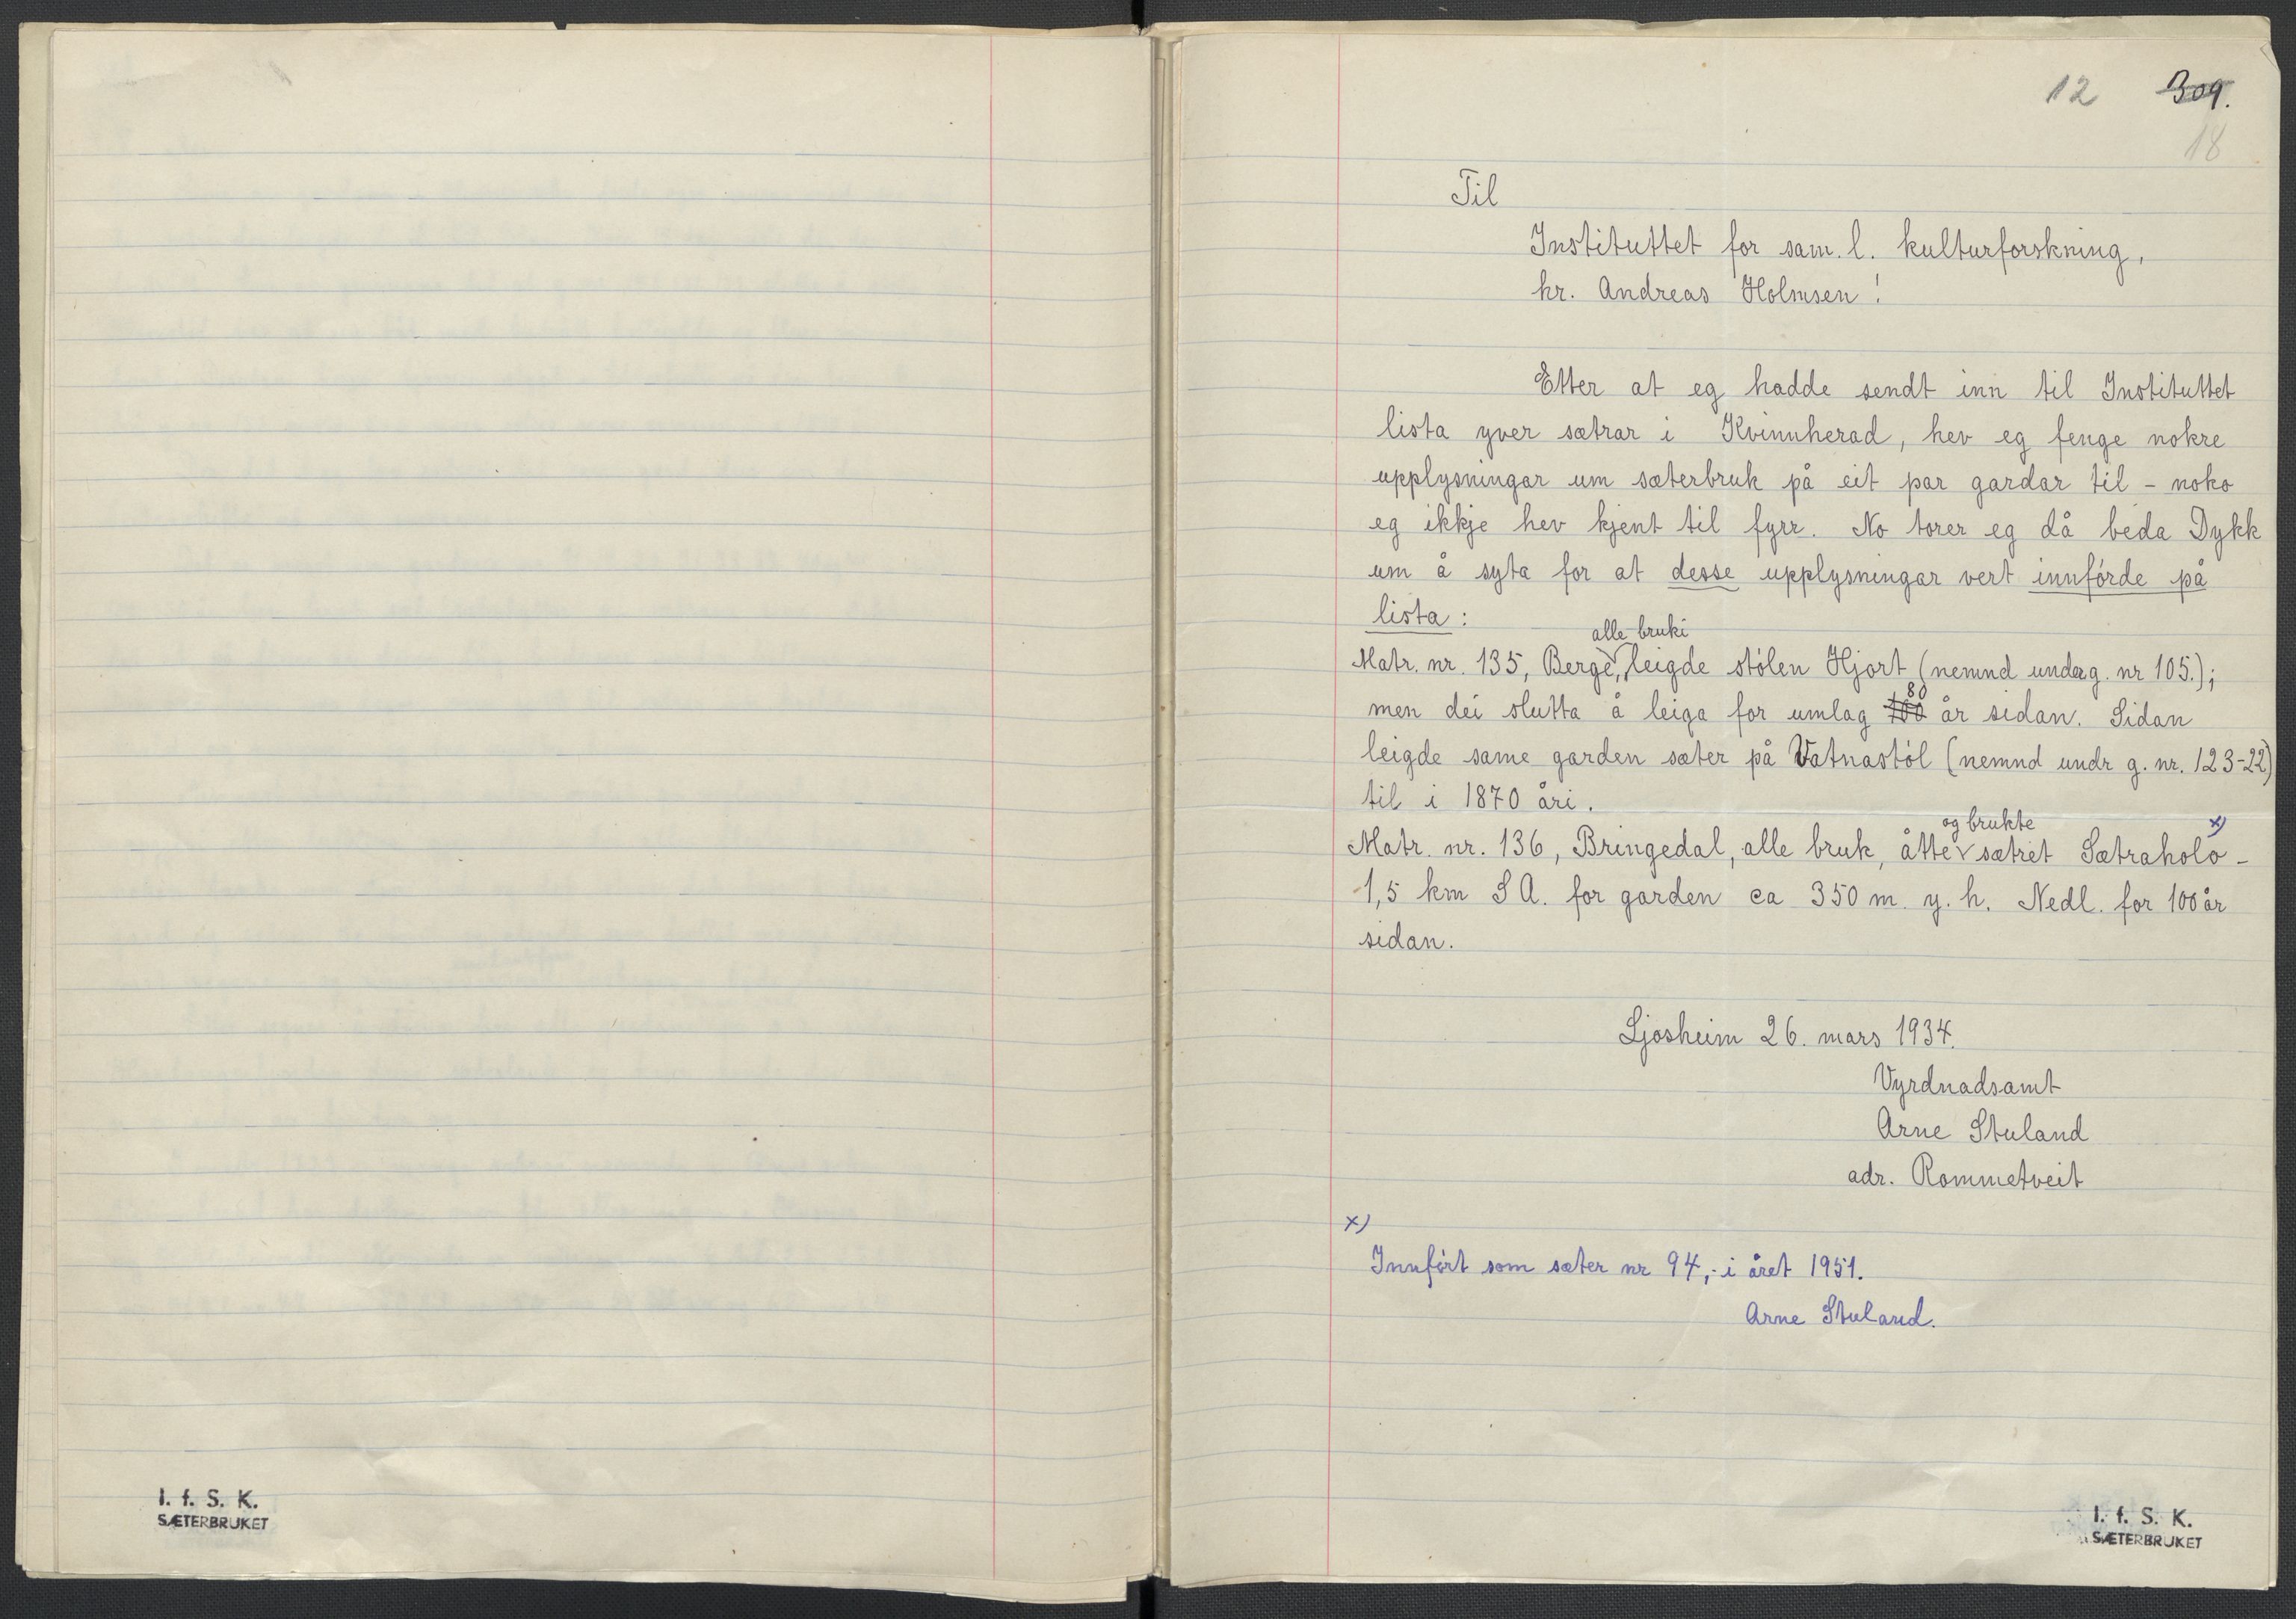 I. f. S. K.
SÆTERBRUKET
12 309.
18
Til
Instituttet for sam. l. kulturforskning,
hr. Andreas Holmsen!
Etter at eg hadde sendt inn til Instituttet
lista yver sætrar i Kvinnherad, hev eg fenge nokre
upplysningar um sæterbruk på eit par gardar til - noko
eg ikkje hev kjent til fyrr. No torer eg då beda Dykk
um å syta for at desse upplysningar vert innförde på
lista:
alle bruki
Matr. nr. 135, Berge, leigde stölen Hjort (nemnd under g. nr 105.);
80
men dei slutta å leiga for umlag 100 år sidan. Sidan
leigde same garden sæter på Vatnastöl (nemnd undr g. nr. 123-22)
til i 1870 åri.
og brukte x)
Matr. nr. 136, Bringedal, alle bruk, åtte sætret Sætraholo -
1,5 km S A. for garden ca 350 m. y. h. Nedl. for 100 år
sidan.
Ljosheim 26. mars 1934.
Vyrdnadsamt
Arne Stuland
adr. Rommetveit
x)
Innfört som sæter nr 94, - i året 1951.
Arne Stuland.
I. f. S. K.
SÆTERBRUKET